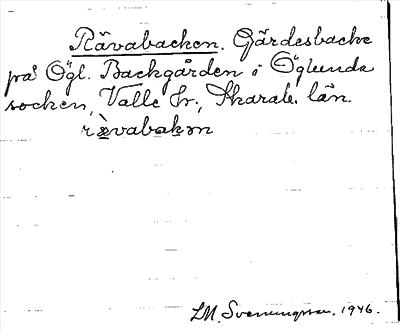 Rävabacken. Gärdesbacke
på Ögl. Backgården i Öglunda
socken, Valle hr., Skarab. län.
rävabakən
LM. Svenungsson. 1946.